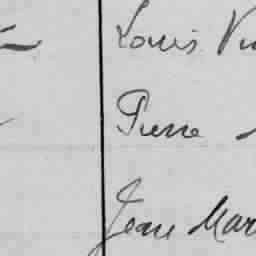 Louis
Pierre
Jean Mar